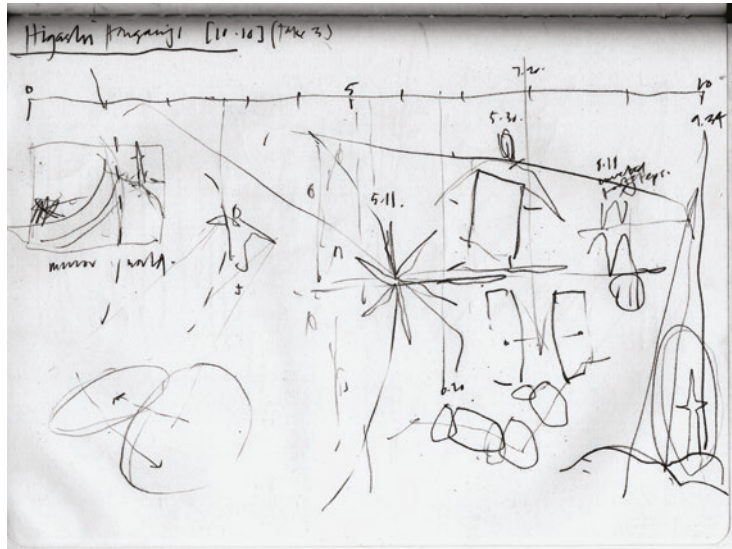 Higashi Honganji [10.10] (take 3)
0
5
7.20
10
9.34
5.30
5.11.
8.11
steps.
mirror world.
6.20